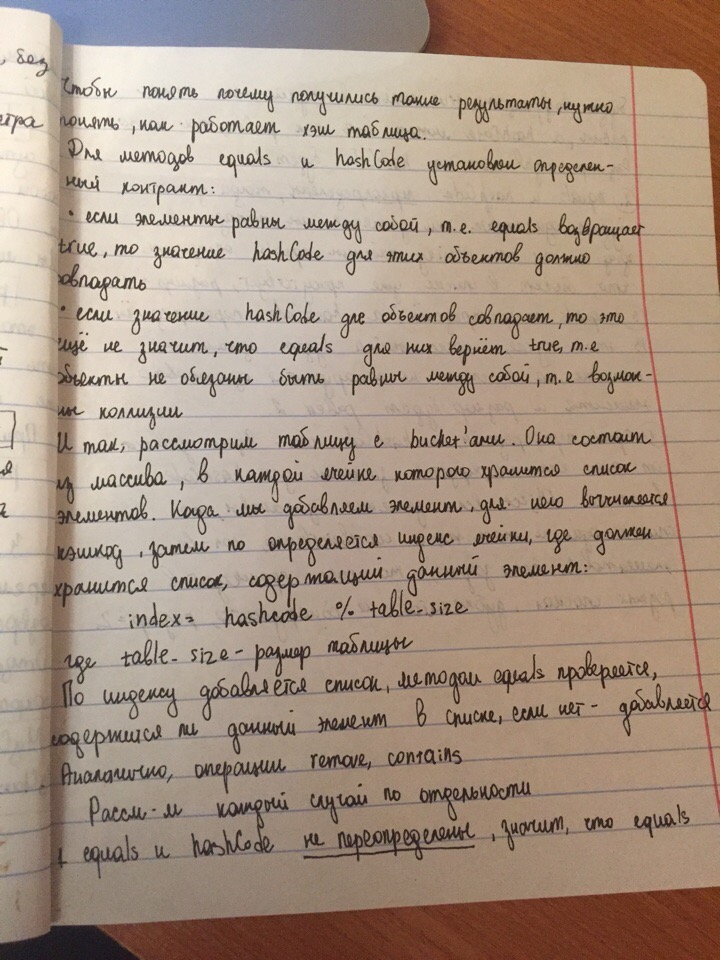 Чтобы понять почему получились такие результаты, нужно
понять, как работает хэш таблица.
Для методов equals и hashCode установлен определен-
ный контракт:
• если элементы равны между собой, т.е. equals возвращает
true, то значение hashCode для этих объектов должно
совпадать
• если значение hashCode для объектов совпадает, то это
ещё не значит, что equals для них вернёт true, т.е
объекты не обязаны быть равны между собой, т.е возмож-
ны коллизии
И так, рассмотрим таблицу с bucket'ами. Она состоит
из массива, в каждой ячейке которого хранится список
элементов. Когда мы добавляем элемент, для него вычисляется
хэшкод, затем по определяется индекс ячейки, где должен
хранится список, содержащий данный элемент:
index= hashcode % table_size
где table_size - размер таблицы
По индексу добавляется список, методом equals проверяется,
содержится ли данный элемент в списке, если нет - добавляется
Аналогично, операции remove, contains
Рассм-м каждый случай по отдельности
1 equals и hashCode не переопределены, значит, что equals